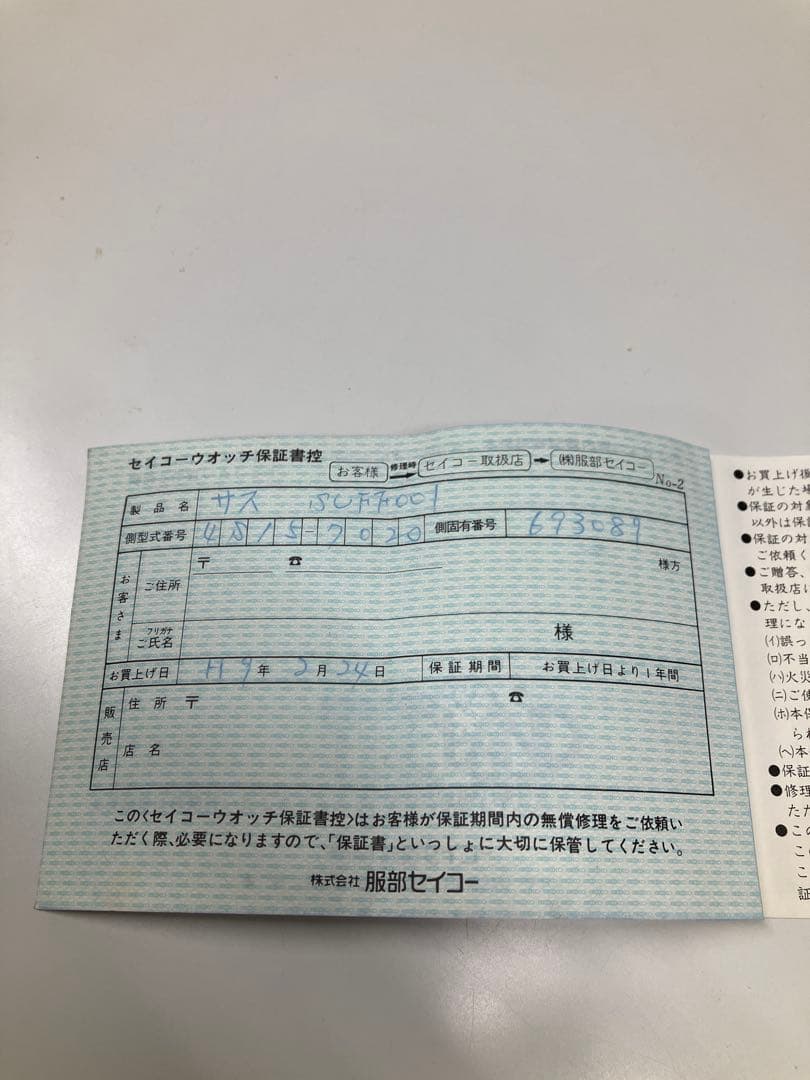 セイコーウオッチ保証書控
お客様 修理時 セイコー取扱店 ㈱服部セイコー No-2
製品名 サス SUFF001
側型式番号 4S15-7020 側固有番号 693089
お客さま
ご住所 〒 ☎ 様方
フリガナ
ご氏名 様
お買上げ日 H9年 2月 24日 保証期間 お買上げ日より1年間
販売店
住所 〒 ☎
店名
この〈セイコーウオッチ保証書控〉はお客様が保証期間内の無償修理をご依頼い
ただく際、必要になりますので、「保証書」といっしょに大切に保管してください。
株式会社 服部セイコー
●お買上げ後
が生じた場
●保証の対象
以外は保
●保証の対
ご依頼く
●ご贈答、
取扱店に
●ただし、
理にな
(イ)誤っ
(ロ)不当
(ハ)火災
(ニ)ご使
(ホ)本保
られ
(ヘ)本
●保証
●修理
ただ
●この
この
こ
証